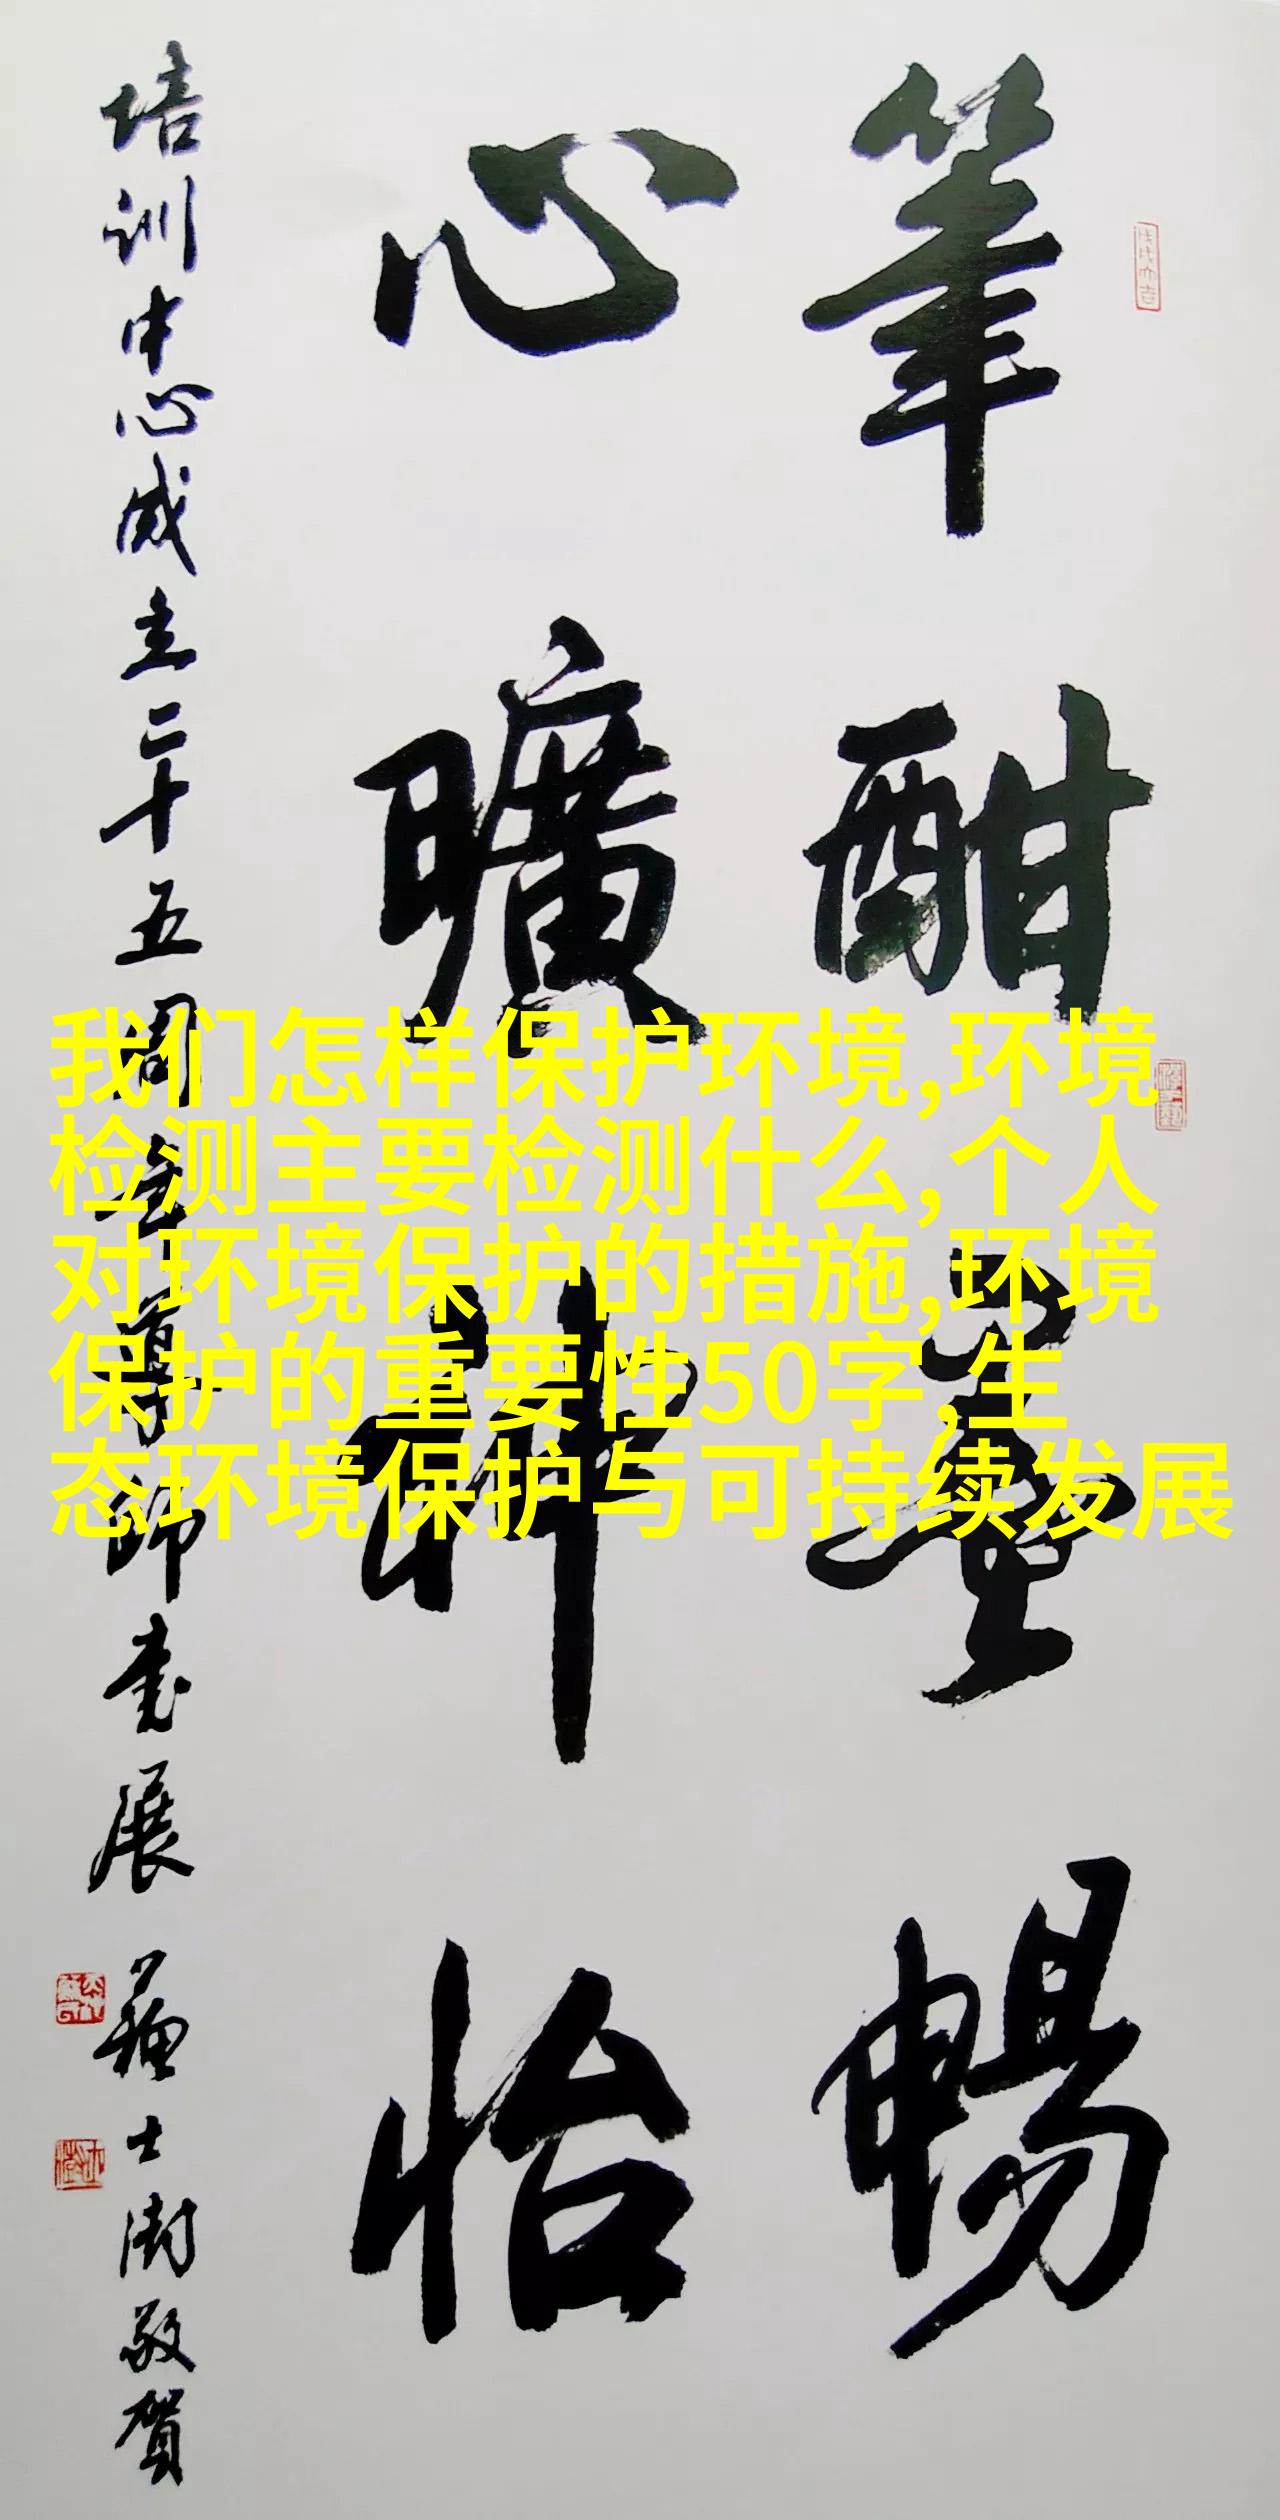 筆酣墨暢
心曠神怡
培训中心成立二十五周年尊師書展
蘇士澍敬賀
我们怎样保护环境,环境
检测主要检测什么,个人
对环境保护的措施,环境
保护的重要性50字,生
态环境保护与可持续发展